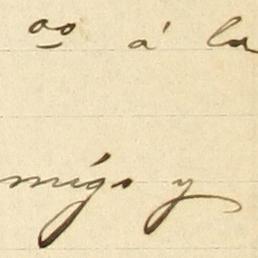 á la
migo y